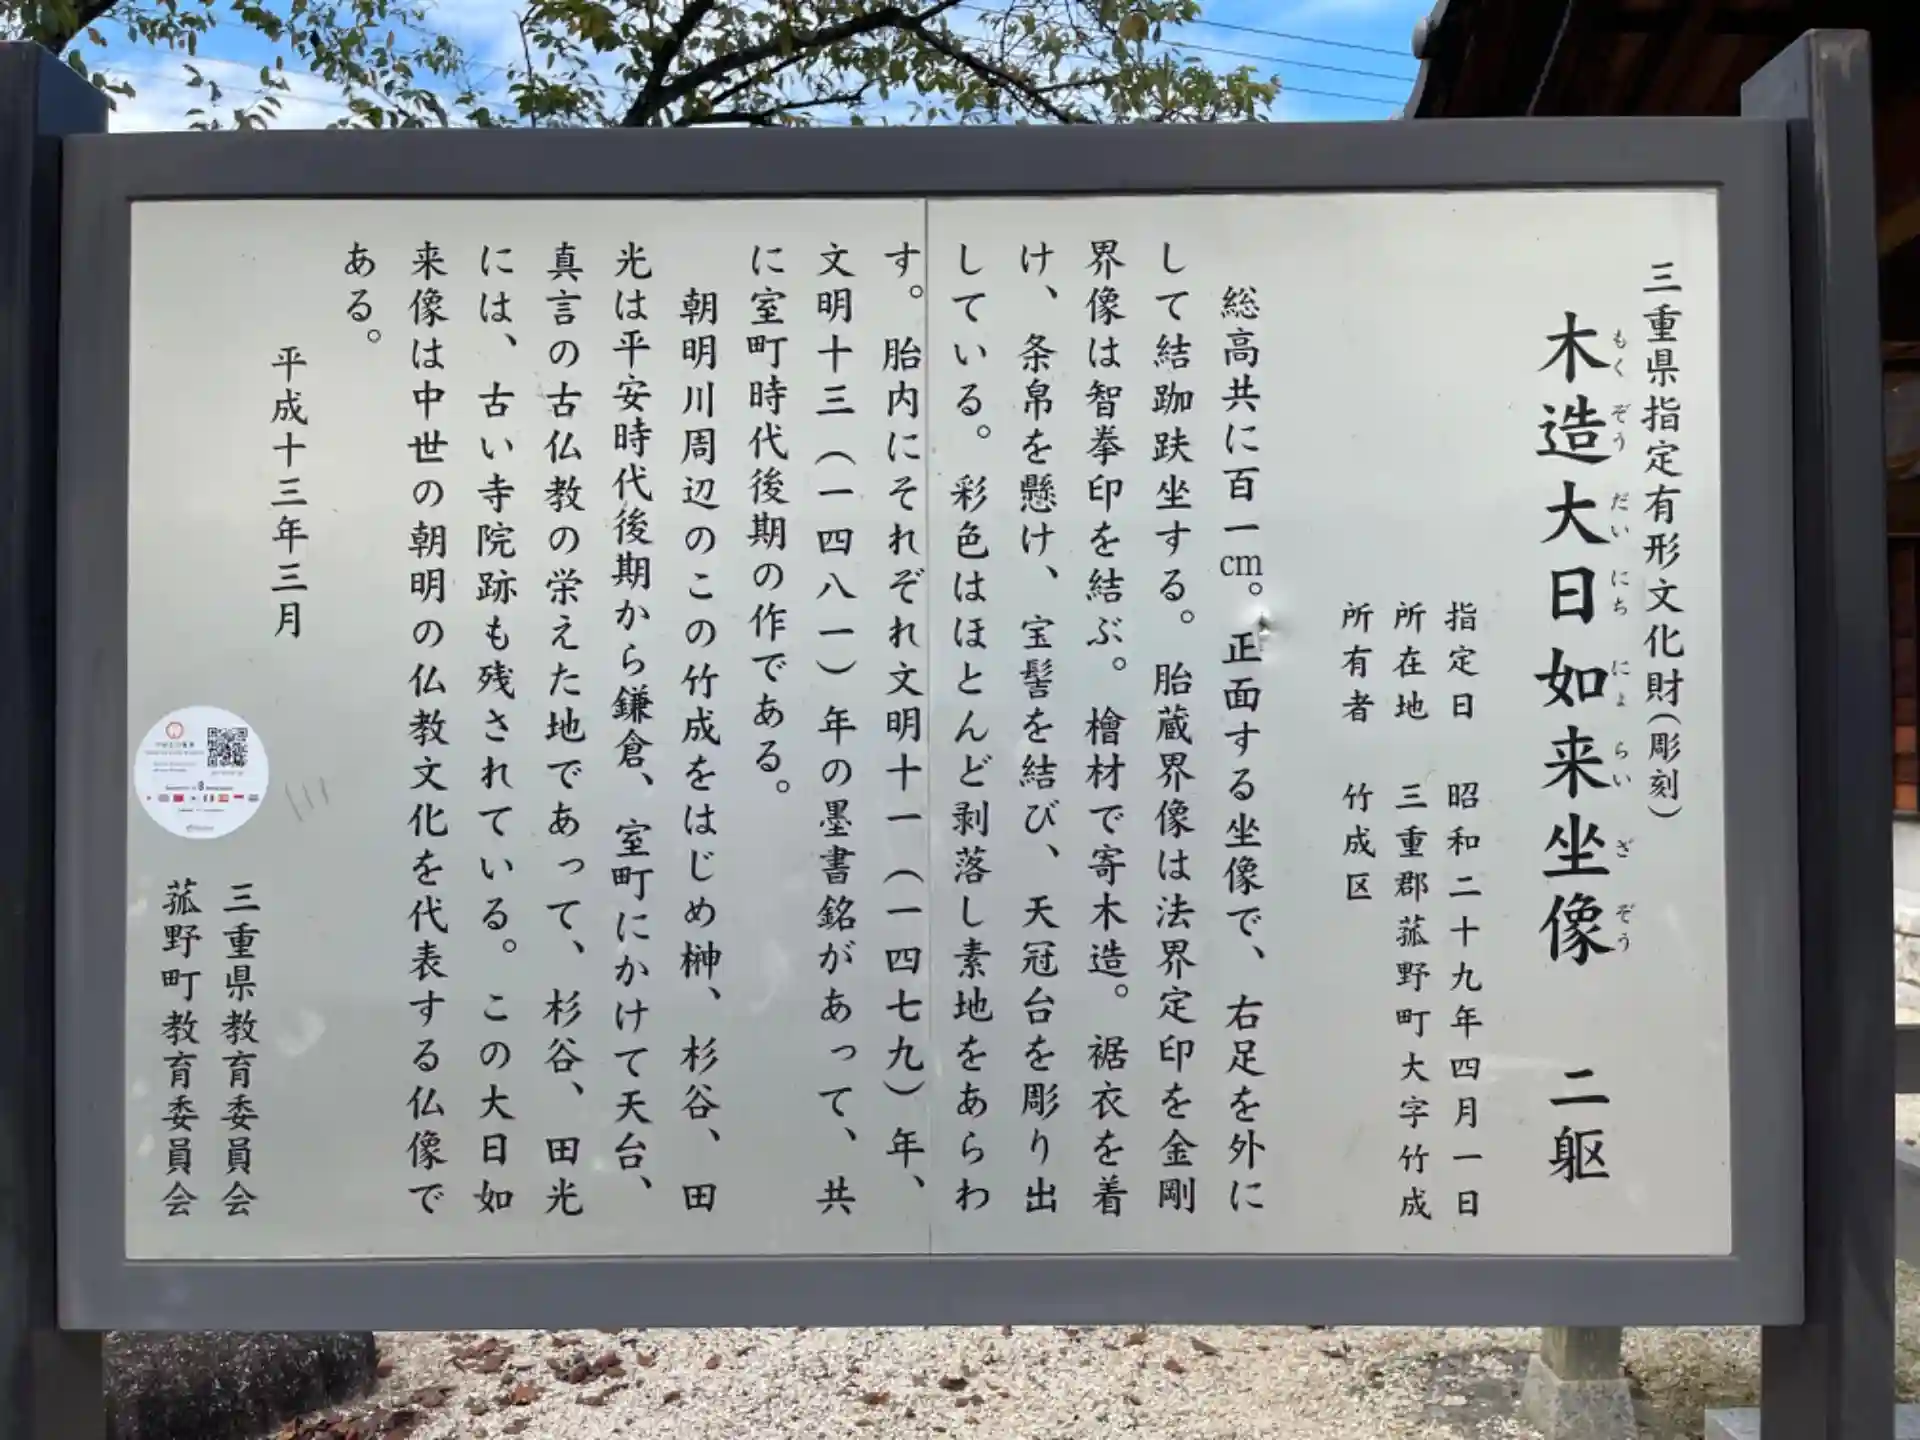 三重県指定有形文化財(彫刻)
木造大日如来坐像　二躯
もくぞうだいにちにょらいざぞう
指定日　昭和二十九年四月一日
所在地　三重郡菰野町大字竹成
所有者　竹成区
総高共に百一cm。正面する坐像で、右足を外に
して結跏趺坐する。胎蔵界像は法界定印を金剛
界像は智拳印を結ぶ。檜材で寄木造。裾衣を着
け、条帛を懸け、宝髻を結び、天冠台を彫り出
している。彩色はほとんど剥落し素地をあらわ
す。胎内にそれぞれ文明十一(一四七九)年、
文明十三(一四八一)年の墨書銘があって、共
に室町時代後期の作である。
朝明川周辺のこの竹成をはじめ榊、杉谷、田
光は平安時代後期から鎌倉、室町にかけて天台、
真言の古仏教の栄えた地であって、杉谷、田光
には、古い寺院跡も残されている。この大日如
来像は中世の朝明の仏教文化を代表する仏像で
ある。
平成十三年三月
三重県教育委員会
菰野町教育委員会